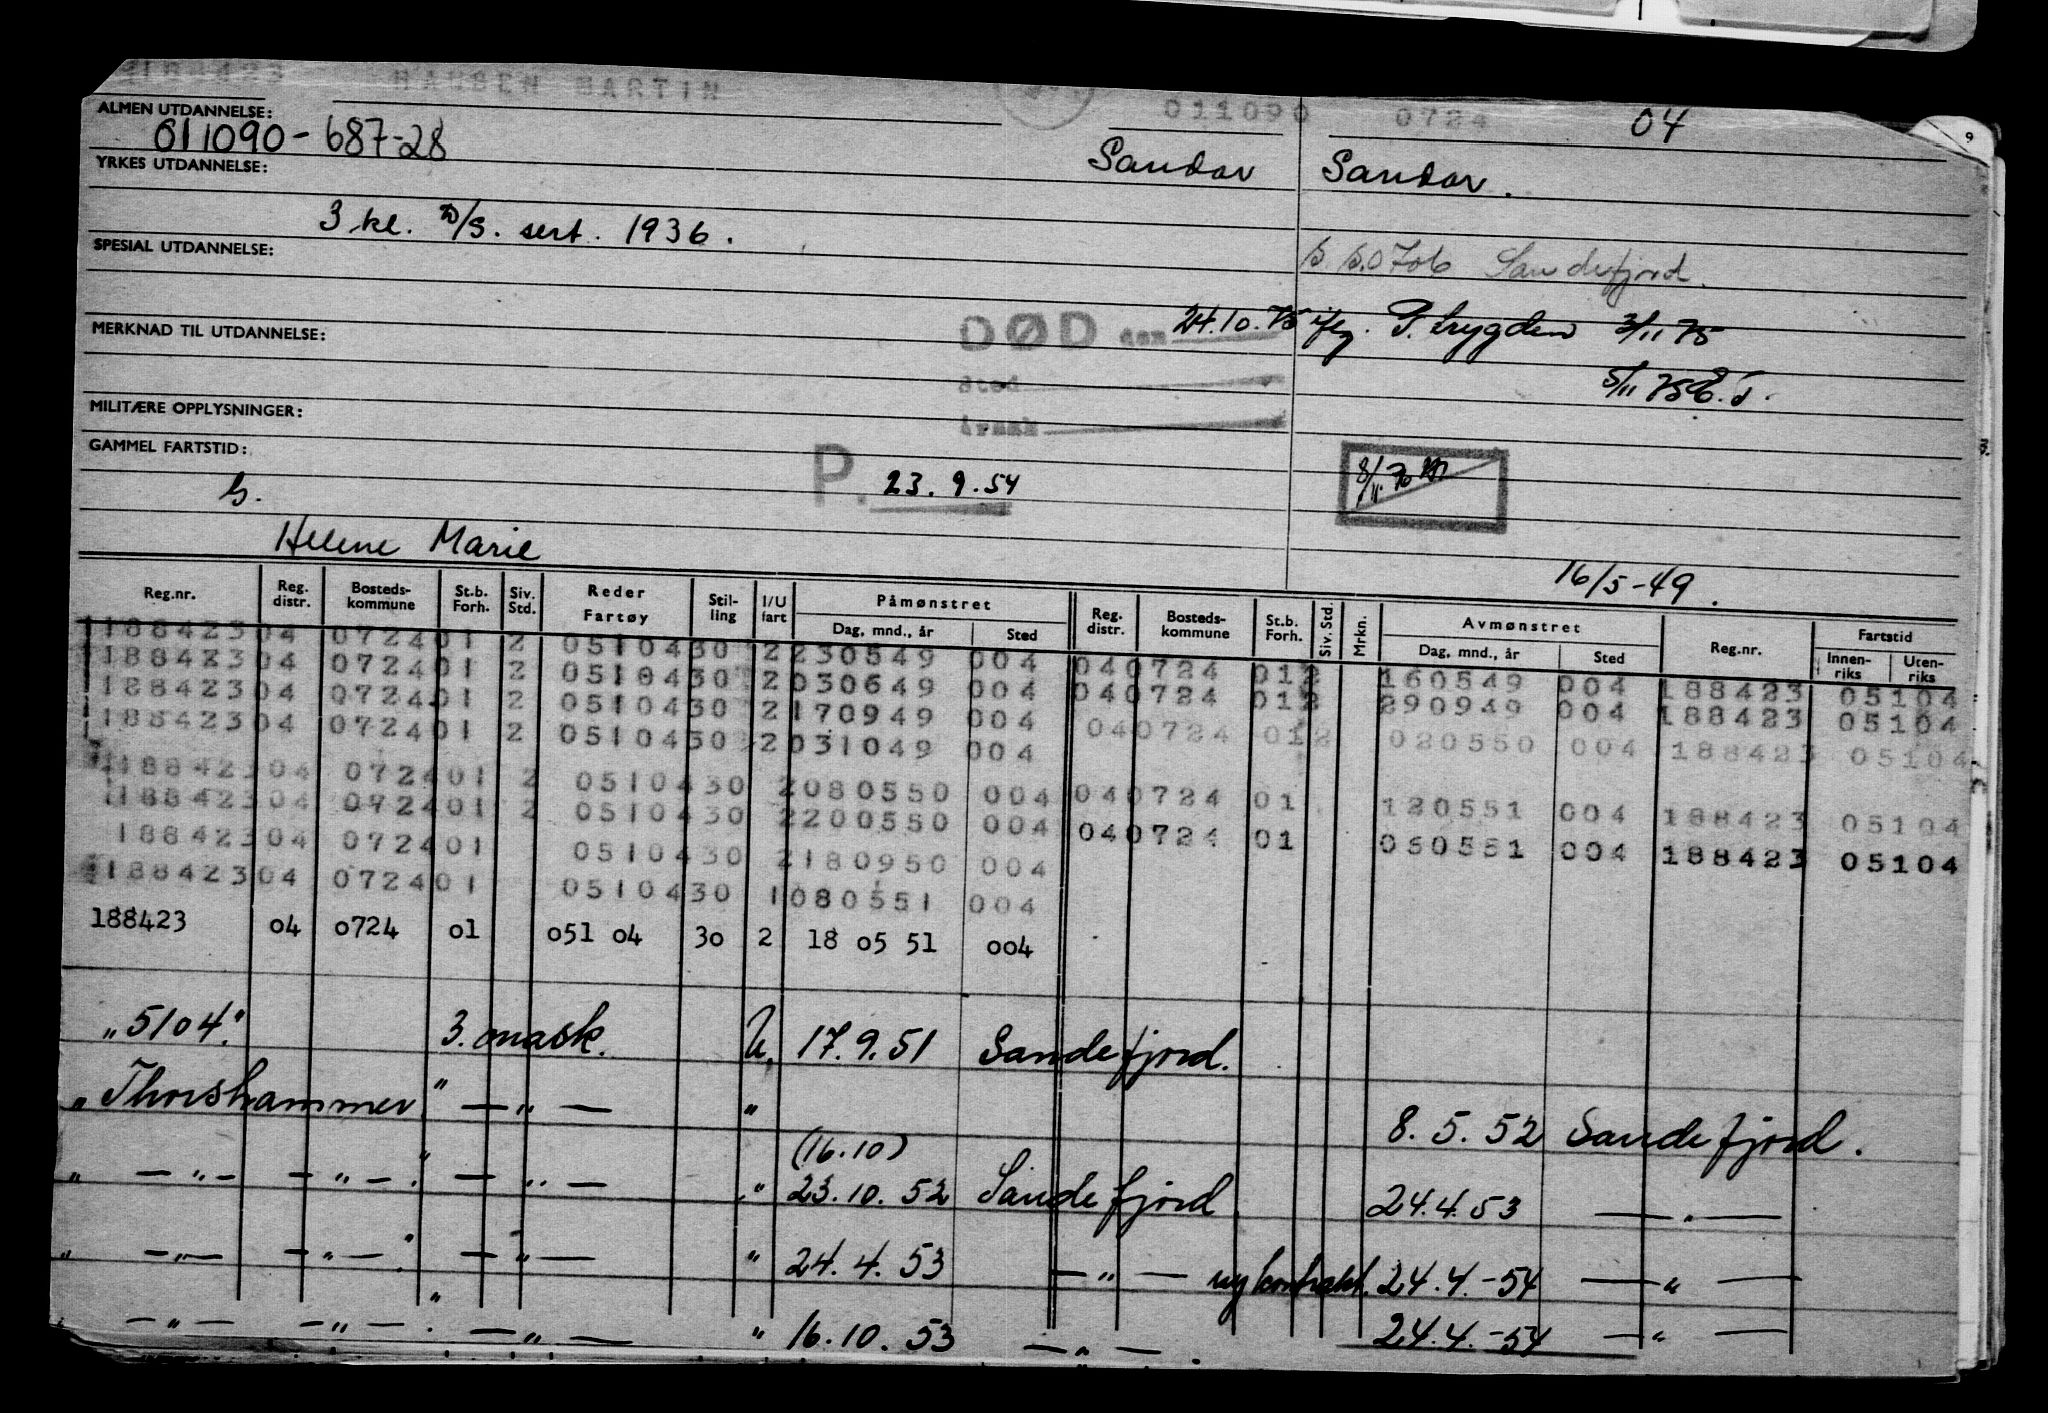 188423 HANSEN MARTIN 011090 0724 04
ALMEN UTDANNELSE:
011090-687-28
YRKES UTDANNELSE:
Sandar Sandar.
3 kl. D/S. sert. 1936.
SPESIAL UTDANNELSE:
Sandefjord.
MERKNAD TIL UTDANNELSE:
DØD den 24.10.75 iflg. P. trygden 3/11 75
Sted
5/11 75
MILITÆRE OPPLYSNINGER:
Årsak
GAMMEL FARTSTID:
P. 23.9.54
8/11.70
G.
Helene Marie
16/5-49.
Reg.nr. Reg. distr. Bosteds-kommune St.b. Forh. Siv. Std. Reder Fartøy Stil-ling I/U fart Påmønstret Dag, mnd., år Sted Reg. distr. Bosteds-kommune St.b. Forh. Siv. Std. Mrkn. Avmønstret Dag, mnd., år Sted Reg.nr. Fartstid Innen-riks Uten-riks
188423 04 0724 01 2 05104 30 2 230549 004 04 0724 01 2 160549 004 188423 05104
188423 04 0724 01 2 05104 30 2 030649 004 04 0724 01 2 290949 004 188423 05104
188423 04 0724 01 2 05104 30 2 170949 004 04 0724 01 2 020550 004 188423 05104
188423 04 0724 01 2 05104 30 2 031049 004
188423 04 0724 01 2 05104 30 2 080550 004 04 0724 01 120551 004 188423 05104
188423 04 0724 01 2 05104 30 2 200550 004 04 0724 01 050551 004 188423 05104
188423 04 0724 01 05104 30 2 180950 004
188423 04 0724 01 05104 30 1 080551 004
188423 04 0724 01 051 04 30 2 18 05 51 004
"5104". 3. mask. U. 17.9.51 Sandefjord.
"Thorshammer" — " — " 8.5.52 Sandefjord.
(16.10)
" — " — — " — . " — " — " 23.10.52 Sandefjord 24.4.53 — " —
" — " — — " — . " — " — " 24.4.53 — " — ny kontrakt. 24.4.-54 — " —
" — " — — " — . " — " — " 16.10.53 — " — . 24.4.-54 — " —